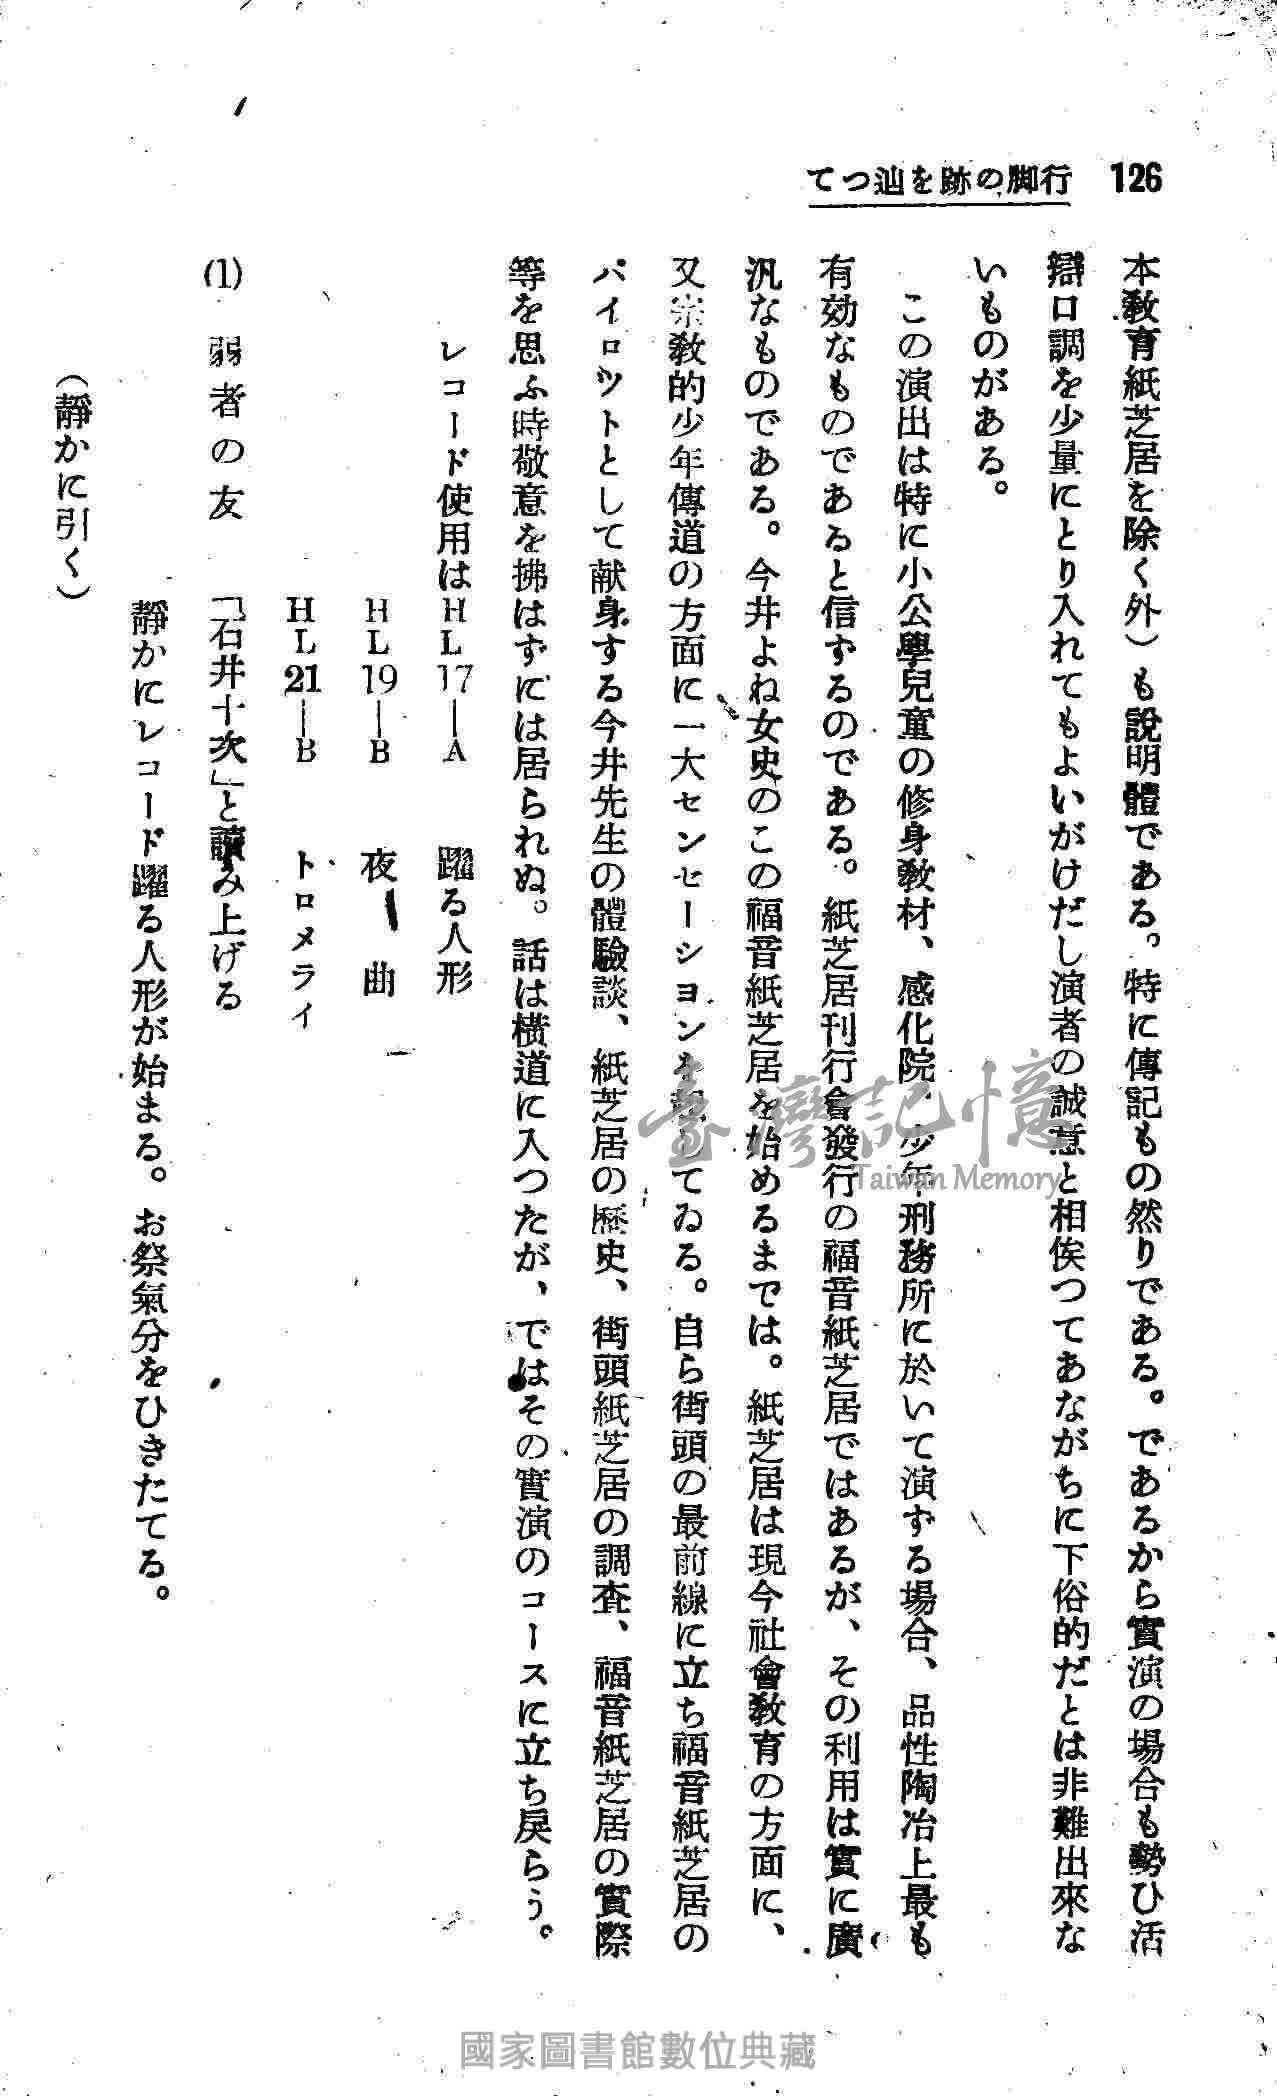 126 行脚の跡を辿つて
本敎育紙芝居を除く外）も說明體である。特に傳記もの然りである。であるから實演の場合も勢ひ活
辯口調を少量にとり入れてもよいがけだし演者の誠意と相俟つてあながちに下俗的だとは非難出來な
いものがある。
この演出は特に小公學兒童の修身敎材、感化院、少年刑務所に於いて演ずる場合、品性陶冶上最も
有効なものであると信ずるのである。紙芝居刊行會發行の福音紙芝居ではあるが、その利用は實に廣
汎なものである。今井よね女史のこの福音紙芝居を始めるまでは。紙芝居は現今社會敎育の方面に、
又宗敎的少年傳道の方面に一大センセーシヨンを起してゐる。自ら街頭の最前線に立ち福音紙芝居の
パイロツトとして献身する今井先生の體驗談、紙芝居の歷史、街頭紙芝居の調査、福音紙芝居の實際
等を思ふ時敬意を拂はずには居られぬ。話は橫道に入つたが、ではその實演のコースに立ち戾らう。
レコード使用はHL17—A 躍る人形
HL19—B 夜曲
HL21—B トロメライ
(1) 弱者の友 「石井十次」と讀み上げる
靜かにレコード躍る人形が始まる。お祭氣分をひきたてる。
（靜かに引く）
臺灣記憶
Taiwan Memory
國家圖書館數位典藏